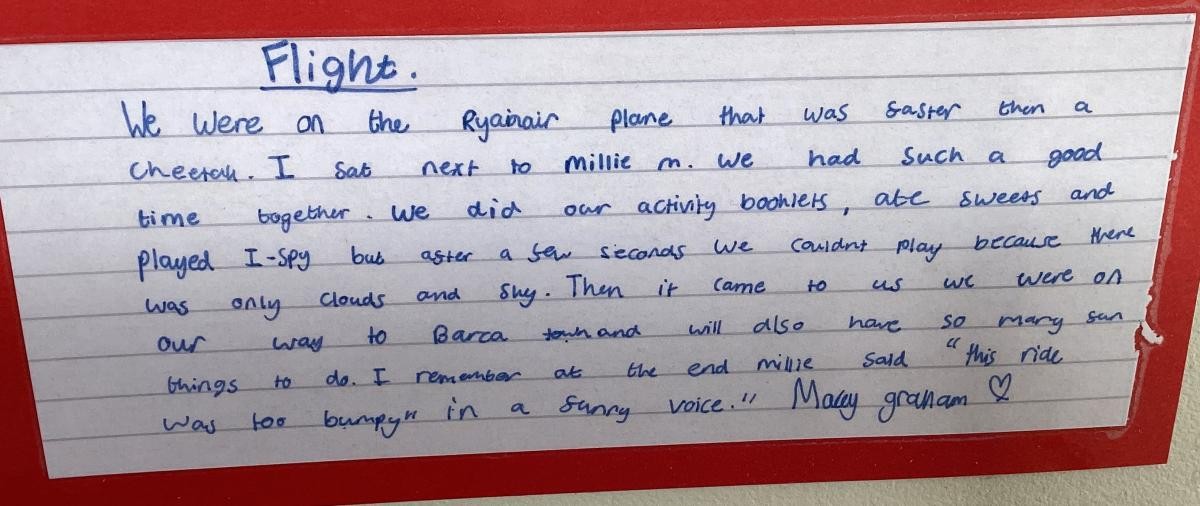 Flight.
We were on the Ryainair plane that was faster then a
cheetah. I sat next to millie m. We had such a good
time together. We did our activity booklets, ate sweets and
played I-Spy but after a few seconds we couldnt play because there
was only clouds and sky. Then it came to us we were on
our way to Barca and will also have so many fun
things to do. I remember at the end millie said "this ride
was too bumpy" in a funny voice." Macey graham ♡